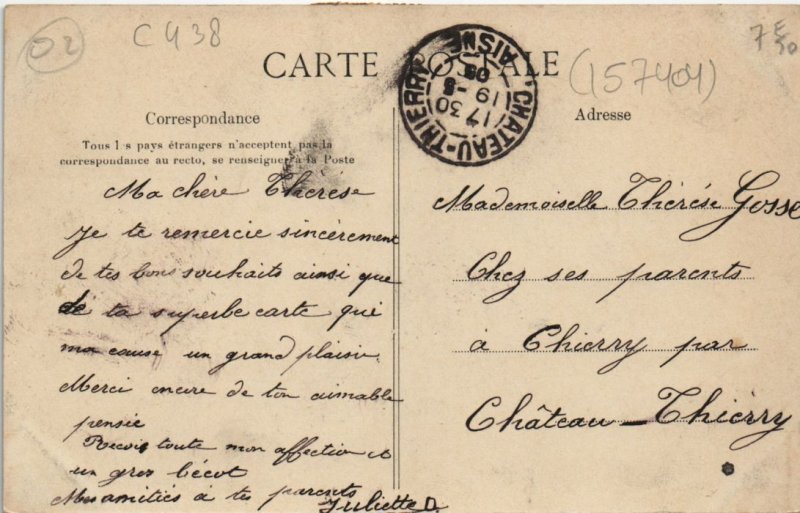 02
C 438
7E
50
CARTE POSTALE
(157404)
CHATEAU-THIERRY
AISNE
17 30
19 - 8
09
Correspondance
Tous les pays étrangers n'acceptent pas la
correspondance au recto, se renseigner à la Poste
Ma chère Thérèse
Je te remercie sincèrement
de tes bons souhaits ainsi que
de ta superbe carte qui
ma cause un grand plaisir
Merci encore de ton aimable
pensée
Reçois toute mon affection et
un gros bécot
Mes amitiés à tes parents
Juliette D.
Adresse
Mademoiselle Thérèse Gosse
Chez ses parents
à Chierry par
Château-Thierry